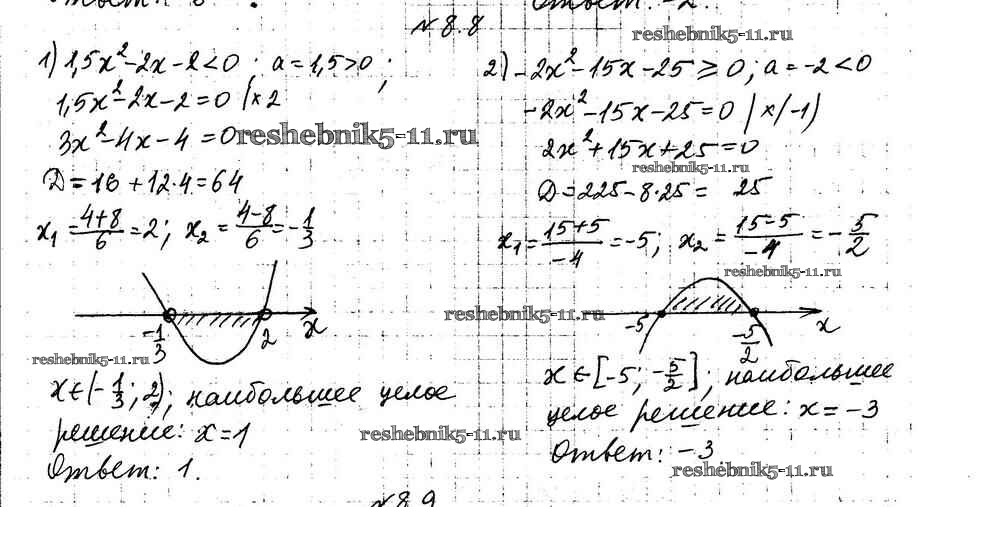 Ответ: -2.
№ 8.8
reshebnik5-11.ru
1) 1,5x² - 2x - 2 < 0 ; a = 1,5 > 0 ;
1,5x² - 2x - 2 = 0 |×2
3x² - 4x - 4 = 0
reshebnik5-11.ru
D = 16 + 12·4 = 64
x₁ = (4+8)/6 = 2; x₂ = (4-8)/6 = -1/3
-1/3 2 x
reshebnik5-11.ru
x ∈ (-1/3; 2); наибольшее целое
решение: x = 1
reshebnik5-11.ru
Ответ: 1.
2) -2x² - 15x - 25 ≥ 0; a = -2 < 0
-2x² - 15x - 25 = 0 |×(-1)
2x² + 15x + 25 = 0
reshebnik5-11.ru
D = 225 - 8·25 = 25
x₁ = (15+5)/-4 = -5; x₂ = (15-5)/-4 = -5/2
reshebnik5-11.ru
reshebnik5-11.ru
-5 -5/2 x
x ∈ [-5; -5/2]; наибольшее
целое решение: x = -3
Ответ: -3
reshebnik5-11.ru
№ 8.9